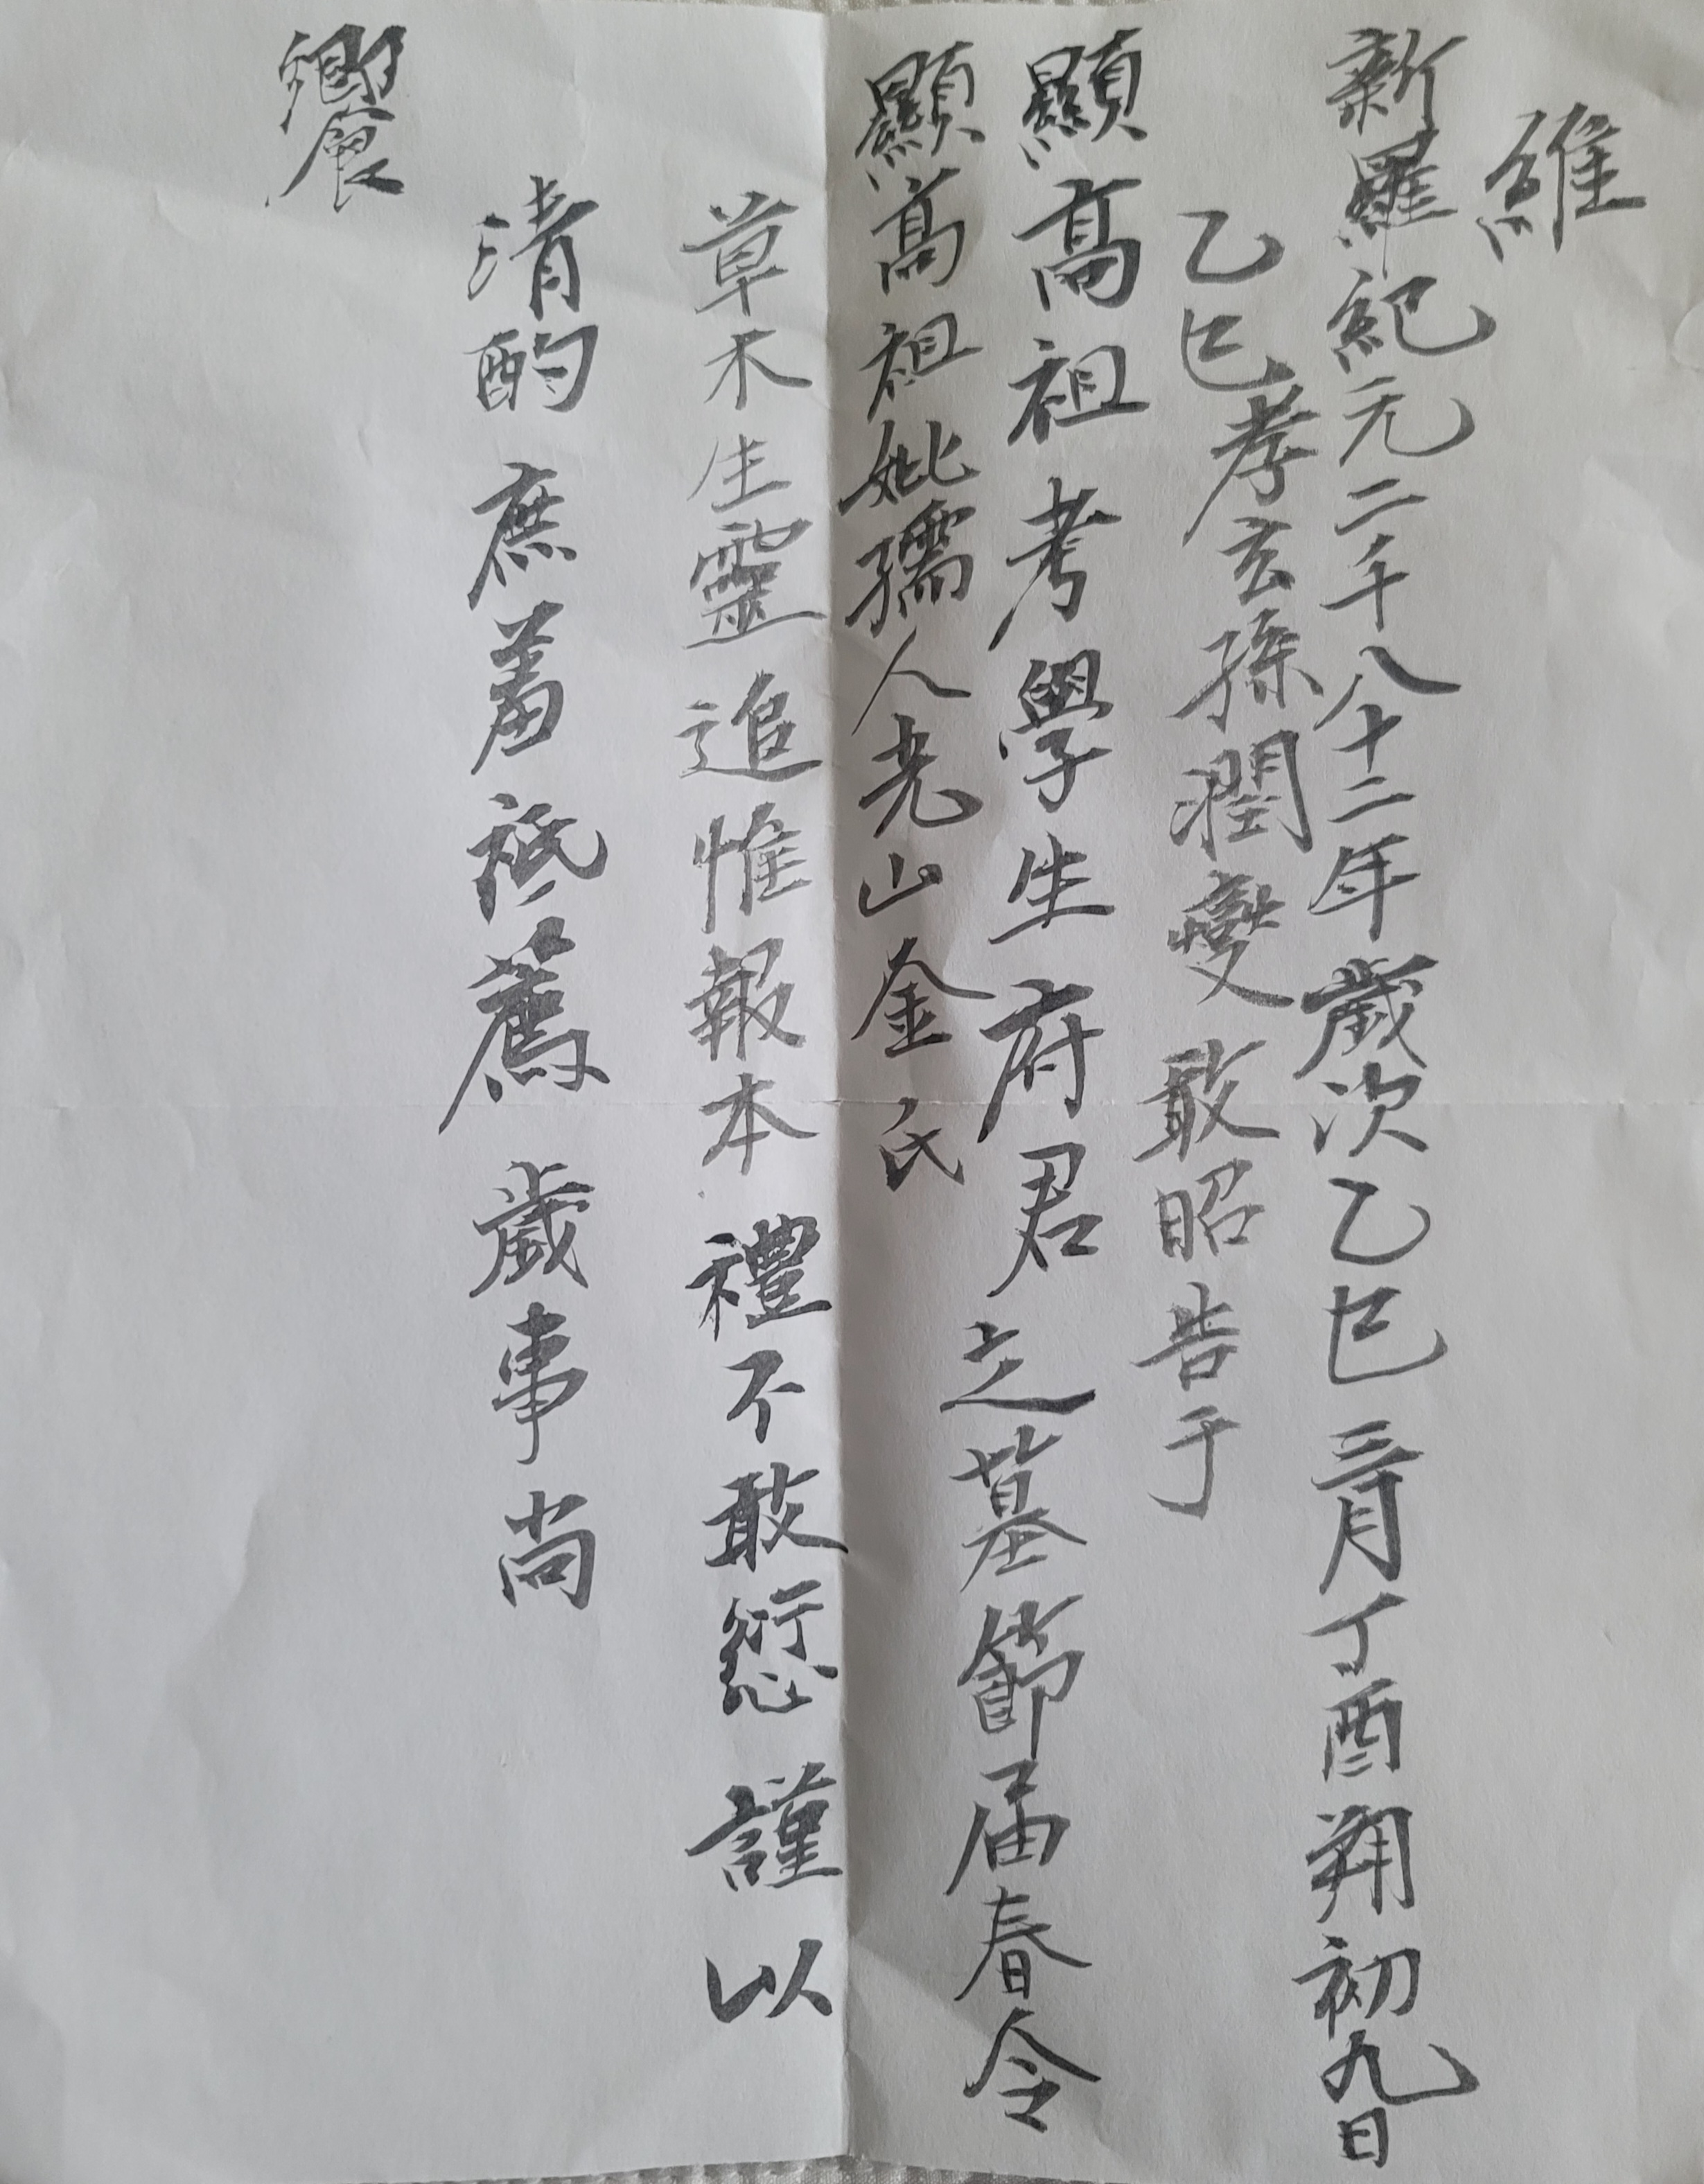 維
新羅紀元二千八十二年歲次乙巳三月丁酉朔初九日
乙巳孝玄孫潤變敢昭告于
顯高祖考學生府君之墓節届春令
顯高祖妣孺人光山金氏
草木生靈追惟報本禮不敢愆謹以
清酌庶羞祗薦歲事尚
饗